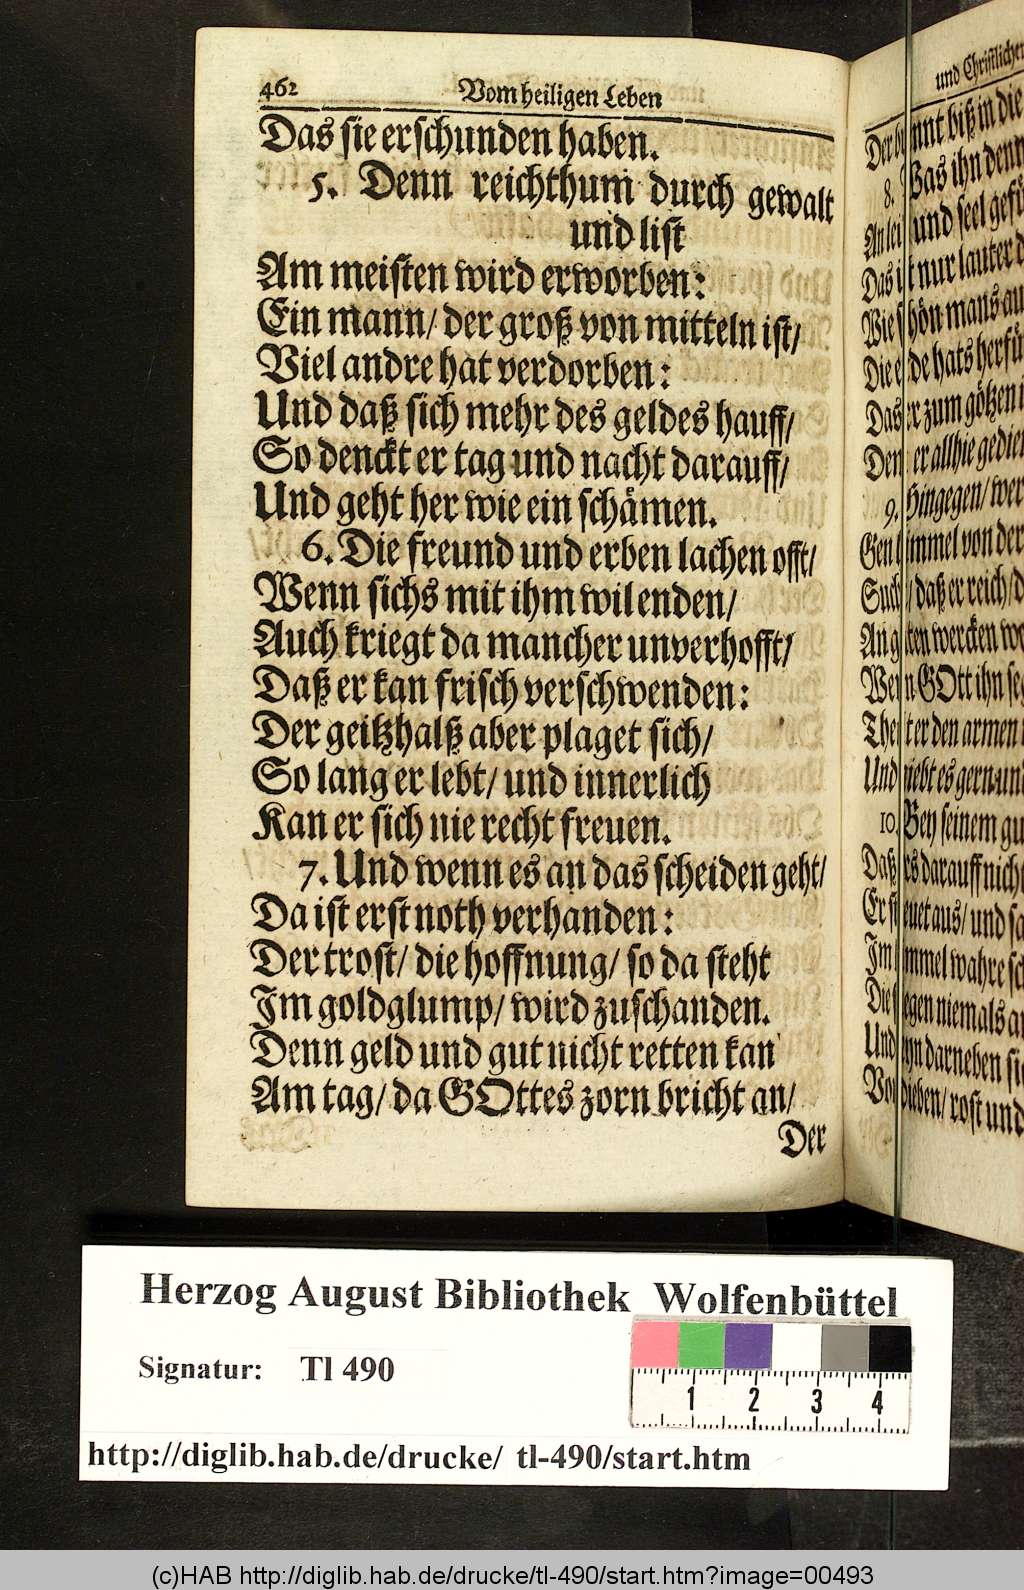 462
Vom heiligen Leben
Das sie erschunden haben.
5. Denn reichthum durch gewalt
und list
Am meisten wird erworben:
Ein mann/ der groß von mitteln ist/
Viel andre hat verdorben:
Und daß sich mehr des geldes hauff/
So denckt er tag und nacht darauff/
Und geht her wie ein schämen.
6. Die freund und erben lachen offt/
Wenn sichs mit ihm wil enden/
Auch kriegt da mancher unverhofft/
Daß er kan frisch verschwenden:
Der geitzhalß aber plaget sich/
So lang er lebt/ und innerlich
Kan er sich nie recht freuen.
7. Und wenn es an das scheiden geht/
Da ist erst noth verhanden:
Der trost/ die hoffnung/ so da steht
Im goldglump/ wird zuschanden.
Denn geld und gut nicht retten kan
Am tag/ da GOttes zorn bricht an/
Der
und Christlichen
nnt biß in die
8.
ihn denn
und seel
nur lauter
mans
zum götzen
er allhie
9. Hingegen/ wer
von der
Such / daß er reich/
wercken
GOtt ihn
er den armen
Und
10. Bey seinem
darauff nicht
aus/ und
wahre
niemals
Und darneben
rost und
Herzog August Bibliothek Wolfenbüttel
Signatur: Tl 490
1 2 3 4
http://diglib.hab.de/drucke/ tl-490/start.htm
(c)HAB http://diglib.hab.de/drucke/tl-490/start.htm?image=00493